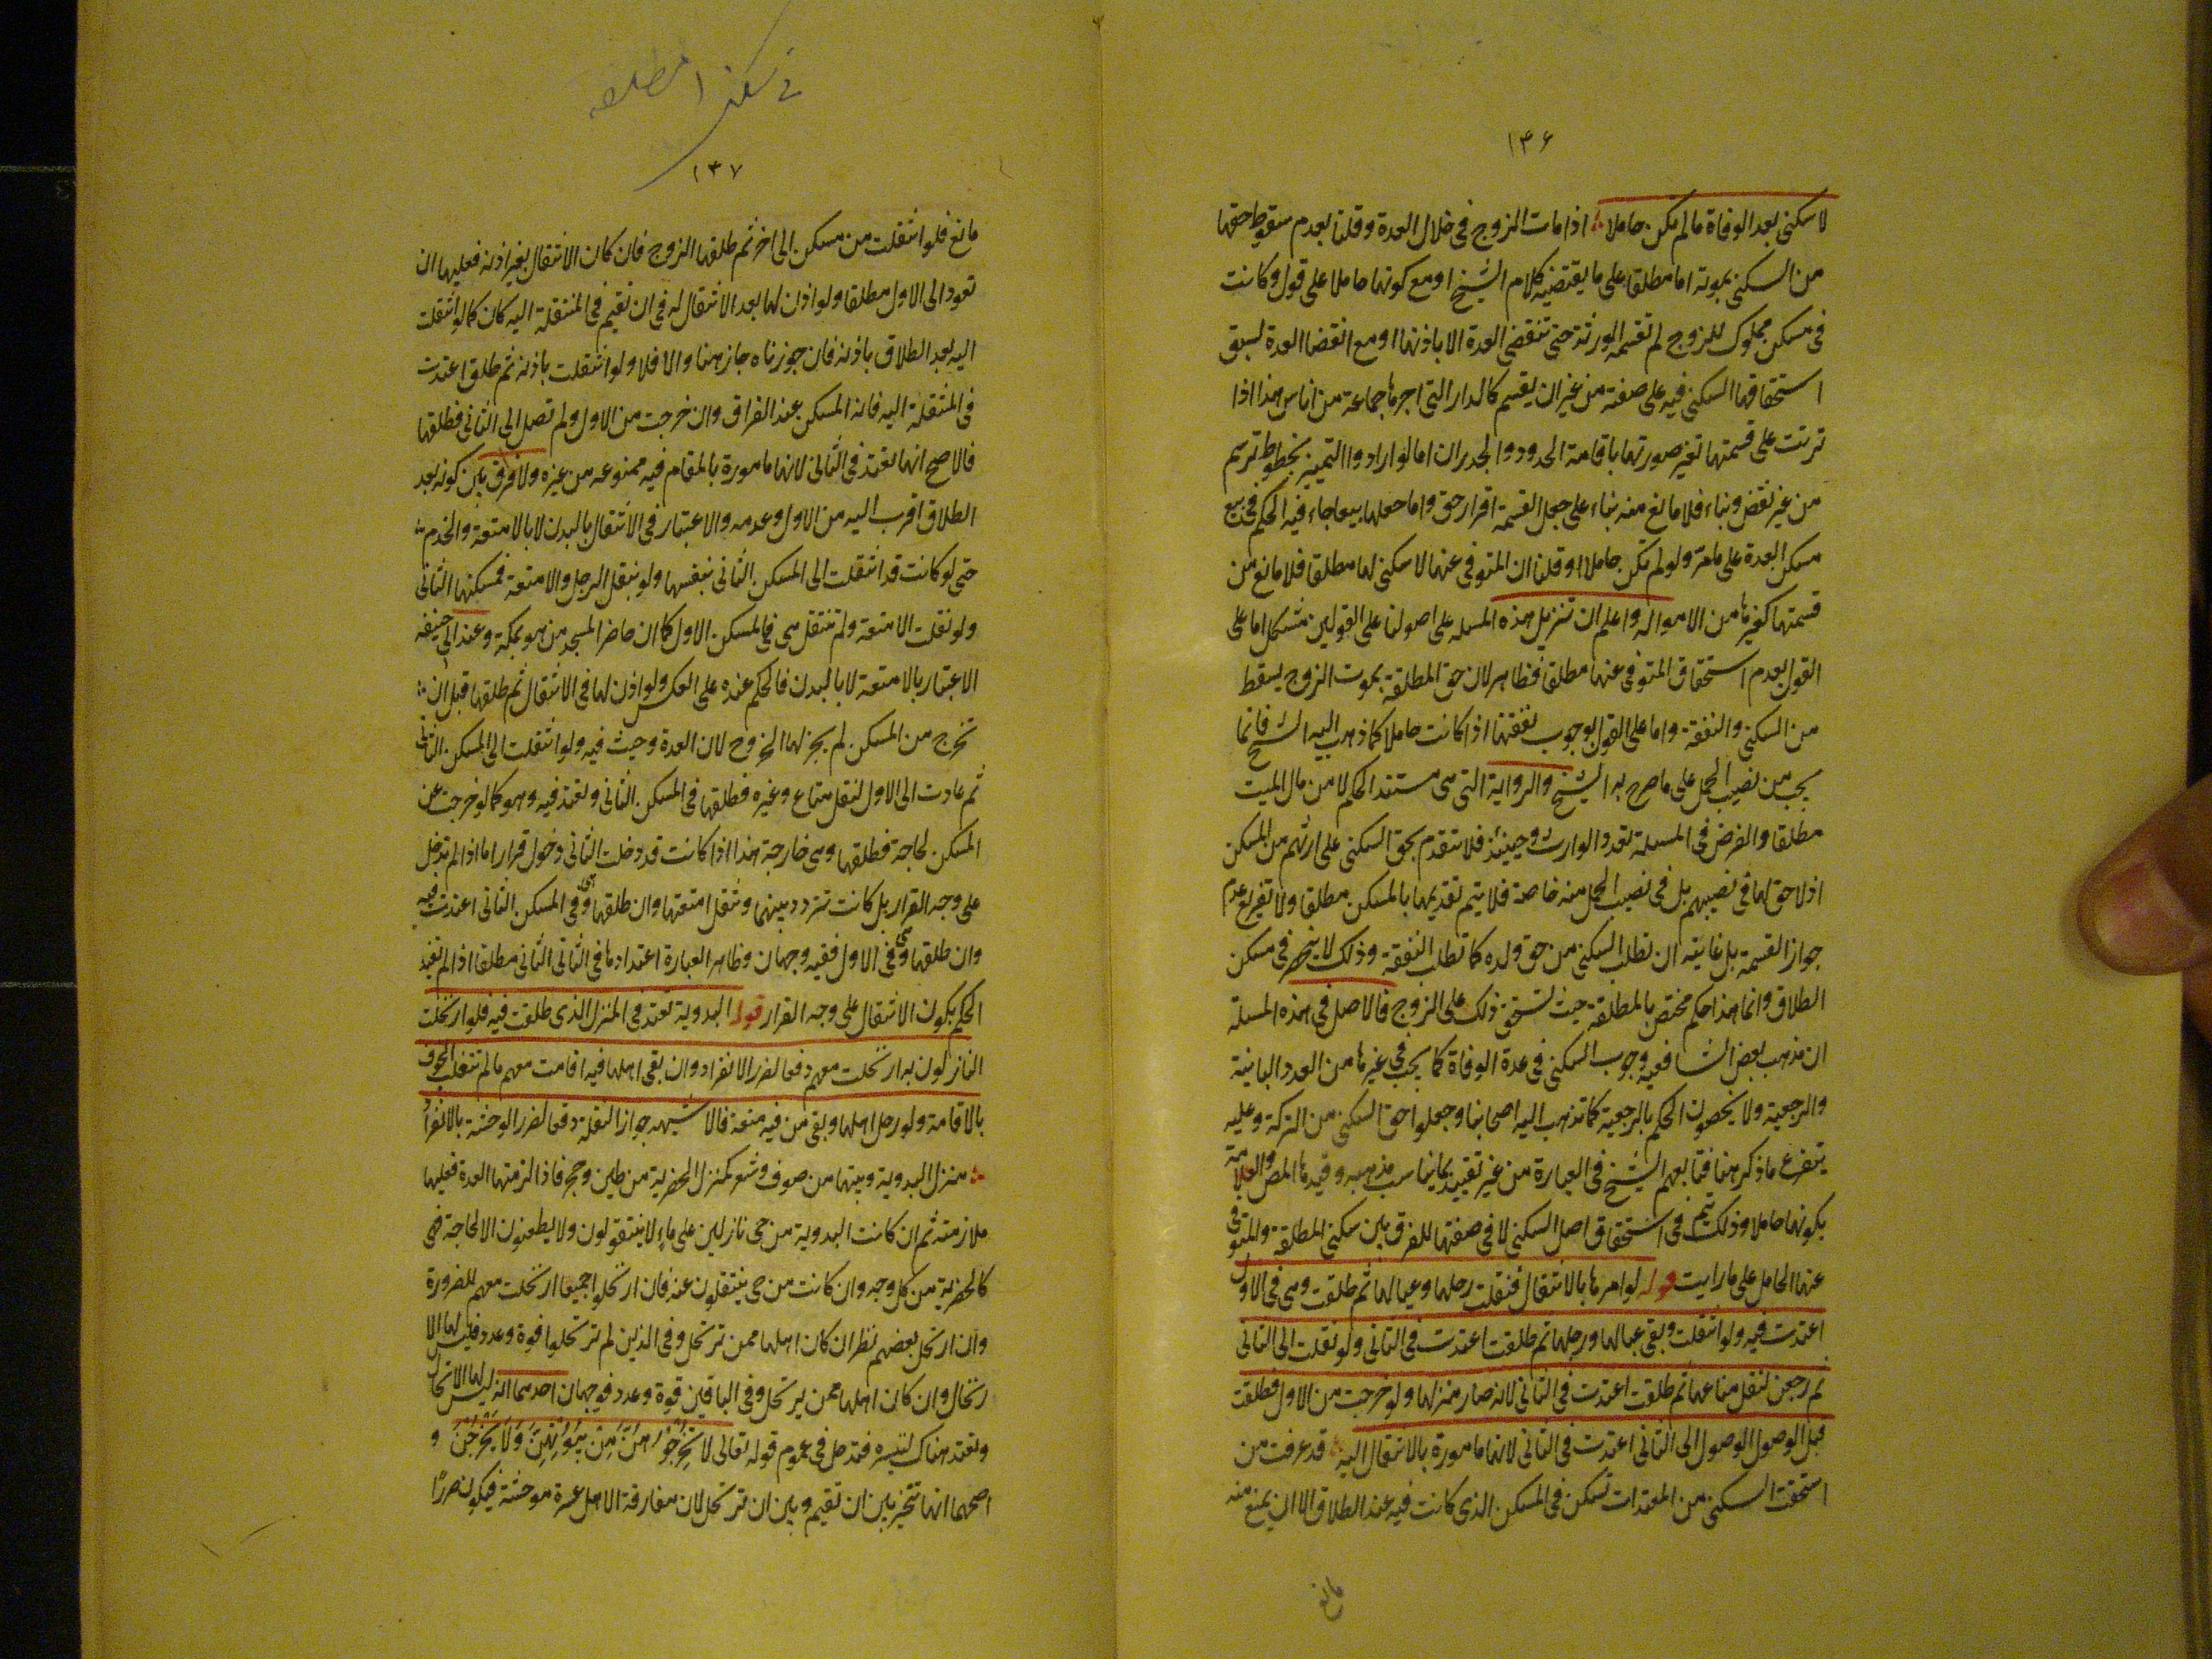 ١٣٦
لا سكنى بعد الوفاة ما لم تكن حاملا اذا مات الزوج فى خلال العدة وقلنا بعدم سقوط حقها
من السكنى بموته اما مطلقا على ما يقتضيه كلام الشيخ او مع كونها حاملا على قول وكانت
فى مسكن مملوك للزوج لم تقسمه الورثة حتى تنقضى العدة الا باذنها او مع انقضا العدة لسبق
استحقاقها السكنى فيه على صفته من غير ان يقسم كالدار التى اجرها جماعة من اناس هذا اذا
ترتبت على قسمتها تغير صورتها باقامة الحدود والجدران اما لو ارادوا التمييز بخطوط ترسم
من غير نقض وبناء فلا مانع منه بناء على جعل القسمة اقرار حق واما جعلها بيعا جاء فيه الحكم فى بيع
مسكن العدة على ما مر ولو لم تكن حاملا او قلنا ان المتوفى عنها لا سكنى لها مطلقا فلا مانع من
قسمتها كغيرها من الاموال واعلم ان تنزيل هذه المسله على اصولنا على القولين مشكل اما على
القول بعدم استحقاق المتوفى عنها مطلقا فظاهر لان حق المطلقة بموت الزوج يسقط
من السكنى والنفقة واما على القول بوجوب نفقتها اذا كانت حاملا كما ذهب اليه الشيخ فانما
يجب من نصيب الحمل على ما صرح به الشيخ والرواية التى هى مستند الحكم لا من مال الميت
مطلقا والفرض فى المسله تعدد الوارث وحينئذ فلا تتقدم بحق السكنى على ارثهم من المسكن
اذ لا حق لها فى نصيبهم بل فى نصيب الحمل منه خاصة فلا يتم تقديمها بالمسكن مطلقا ولا تفريع عدم
جواز القسمة بل غايته ان تطلب السكنى من حق ولده كما تطلب النفقة وذلك لا ينحصر فى مسكن
الطلاق وانما هذا حكم مختص بالمطلقة حيث تستحق ذلك على الزوج فالاصل فى هذه المسله
ان مذهب بعض الشافعيه وجوب السكنى فى عدة الوفاة كما يجب فى غيرها من العدد البائنة
والرجعية ولا يخصون الحكم بالرجعية كما تذهب اليه اصحابنا وجعلوا حق السكنى من التركة وعليه
يتفرع ما ذكر هنا فتابعهم الشيخ فى العبارة من غير تقييد بما يناسب مذهبه وقيدها المصن والعلامة
بكونها حاملا وذلك يتم فى استحقاق اصل السكنى لا فى صفتها للفرق بين سكنى المطلقة والمتوفى
عنها الحامل على ما رايت قوله لو امرها بالانتقال فنقلت رحلها وعيالها ثم طلقت وهى فى الاول
اعتدت فيه ولو انتقلت وبقى عيالها ورحلها ثم طلقت اعتدت فى الثانى ولو نقلت الى الثانى
ثم رجعت لنقل متاعها ثم طلقت اعتدت فى الثانى لانه صار منزلها ولو خرجت من الاول فطلقت
قبل الوصول الوصول الى الثانى اعتدت فى الثانى لانها مامورة بالانتقال اليه قد عرفت من
استحقت السكنى من المعتدات تسكن فى المسكن الذى كانت فيه عند الطلاق الا ان يمنع منه
مانع
فى سكنى المطلقه
١٣٧
مانع فلو انتقلت من مسكن الى اخر ثم طلقها الزوج فان كان الانتقال بغير اذنه فعليها ان
تعود الى الاول مطلقا ولو اذن لها بعد الانتقال له فى ان تقيم فى المنتقلة اليه كان كما لو انتقلت
اليه بعد الطلاق باذنه فان جوزناه جاز هنا والا فلا ولو انتقلت باذنه ثم طلق اعتدت
فى المنتقلة اليه فانه المسكن عند الفراق وان خرجت من الاول ولم تصل الى الثانى فطلقها
فالاصح انها تعتد فى الثانى لانها مامورة بالمقام فيه ممنوعه من غيره ولا فرق بين كونه بعد
الطلاق اقرب اليه من الاول وعدمه والاعتبار فى الانتقال بالبدن لا بالامتعة والخدم
حتى لو كانت قد انتقلت الى المسكن الثانى بنفسها ولو نبقل الرحل والامتعة فمسكنها الثانى
ولو نقلت الامتعة ولم تنتقل هى فالمسكن الاول كما ان حاضر المسجد من هو بمكة وعند ابى حنيفه
الاعتبار بالامتعة لا بالبدن فالحكم عنده على العكس ولو اذن لها فى الانتقال ثم طلقها قبل ان
تخرج من المسكن لم يجز لها الخروج لان العدة وجبت فيه ولو انتقلت الى المسكن الثانى
ثم عادت الى الاول لنقل متاع وغيره فطلقها فى المسكن الثانى وتعتد فيه وهو كما لو خرجت عن
المسكن لحاجة فطلقها وهى خارجة هذا اذا كانت قد دخلت الثانى دخول قرار اما اذا لم تدخل
على وجه القرار بل كانت تتردد بينهما وتنقل امتعتها وان طلقها وهى فى المسكن الثانى اعتدت فيه
وان طلقها وهى فى الاول ففيه وجهان وظاهر العبارة اعتدادها فى الثانى الثانى مطلقا اذ لم يقيد
الحكم بكون الانتقال على وجه القرار قوله البدوية تعتد فى المنزل الذى طلقت فيه فلو ارتحلت
النازلون به ارتحلت معهم دفعا لضرر الانفراد وان بقى اهلها فيه اقامت معهم ما لم تتغلب الخوف
بالاقامة ولو رحل اهلها وبقى من فيه منعة فالاشبهه جواز النقلة دفعا لضرر الوحشة بالانفراد
منزل البدوية وبيتها من صوف وشعر كمنزل الحضرية من طين وحجر فاذا لزمتها العدة فعليها
ملازمته ثم ان كانت البدوية من حى نازلين على ماء لا ينتقولون ولا يظعنون الا لحاجة فهى
كالحضرية من كل وجه وان كانت من حى ينتقلون عنه فان ارتحلوا جميعا ارتحلت معهم للضرورة
وان ارتحل بعضهم نظر ان كان اهلها ممن ترتحل وفى الذين لم ترتحلوا قوة وعدد فليس لها الا
رتحال وان كان اهلها ممن يرتحل وفى الباقين قوة وعدد فوجهان احدهما انه ليس لها الارتحال
وتعتد هناك لتيسره فتدخل فى عموم قوله تعالى لا تُخرِجُوهُنَّ مِنْ بُيُوتِهِنَّ وَلَا يَخْرُجْنَ و
اصحهما انها تتخير بين ان تقيم وبين ان ترتحل لان مفارقة الاهل عسرة موحشة فيكون ضررا